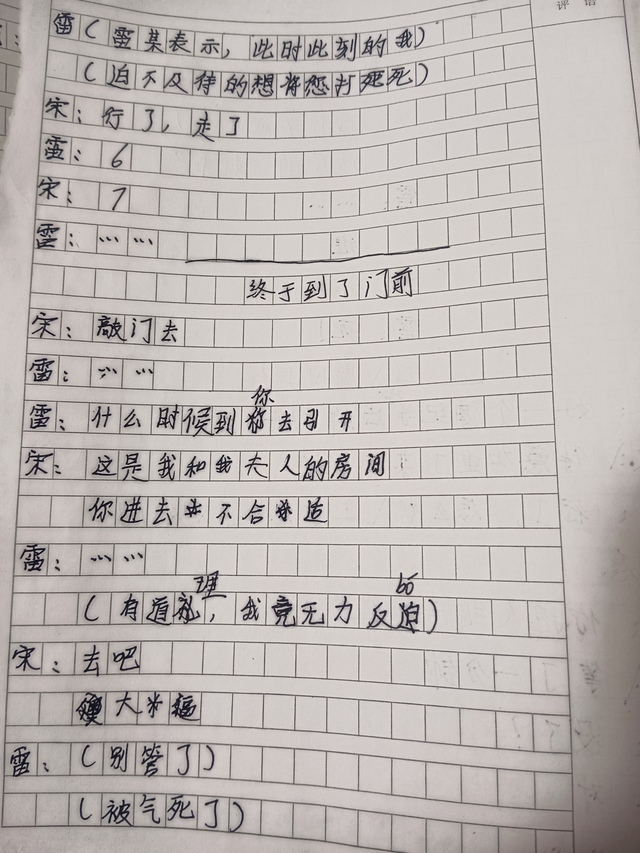 评语
雷(雷某表示,此时此刻的我)
(迫不及待的想将您打死)
宋:行了,走了
雷:6
宋:7
雷:……
终于到了门前
宋:敲门去
雷:……
你
雷:什么时候到 去引开
宋:这是我和我夫人的房间
你进去 不合 适
雷:……
理 的
(有道礼,我竟无力反迫)
宋:去吧
大
雷:(别管了)
(被气死了)